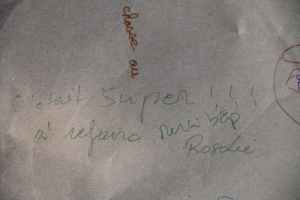 chasse au
c'était super!!!
à refaire merci bcp
Rosalie